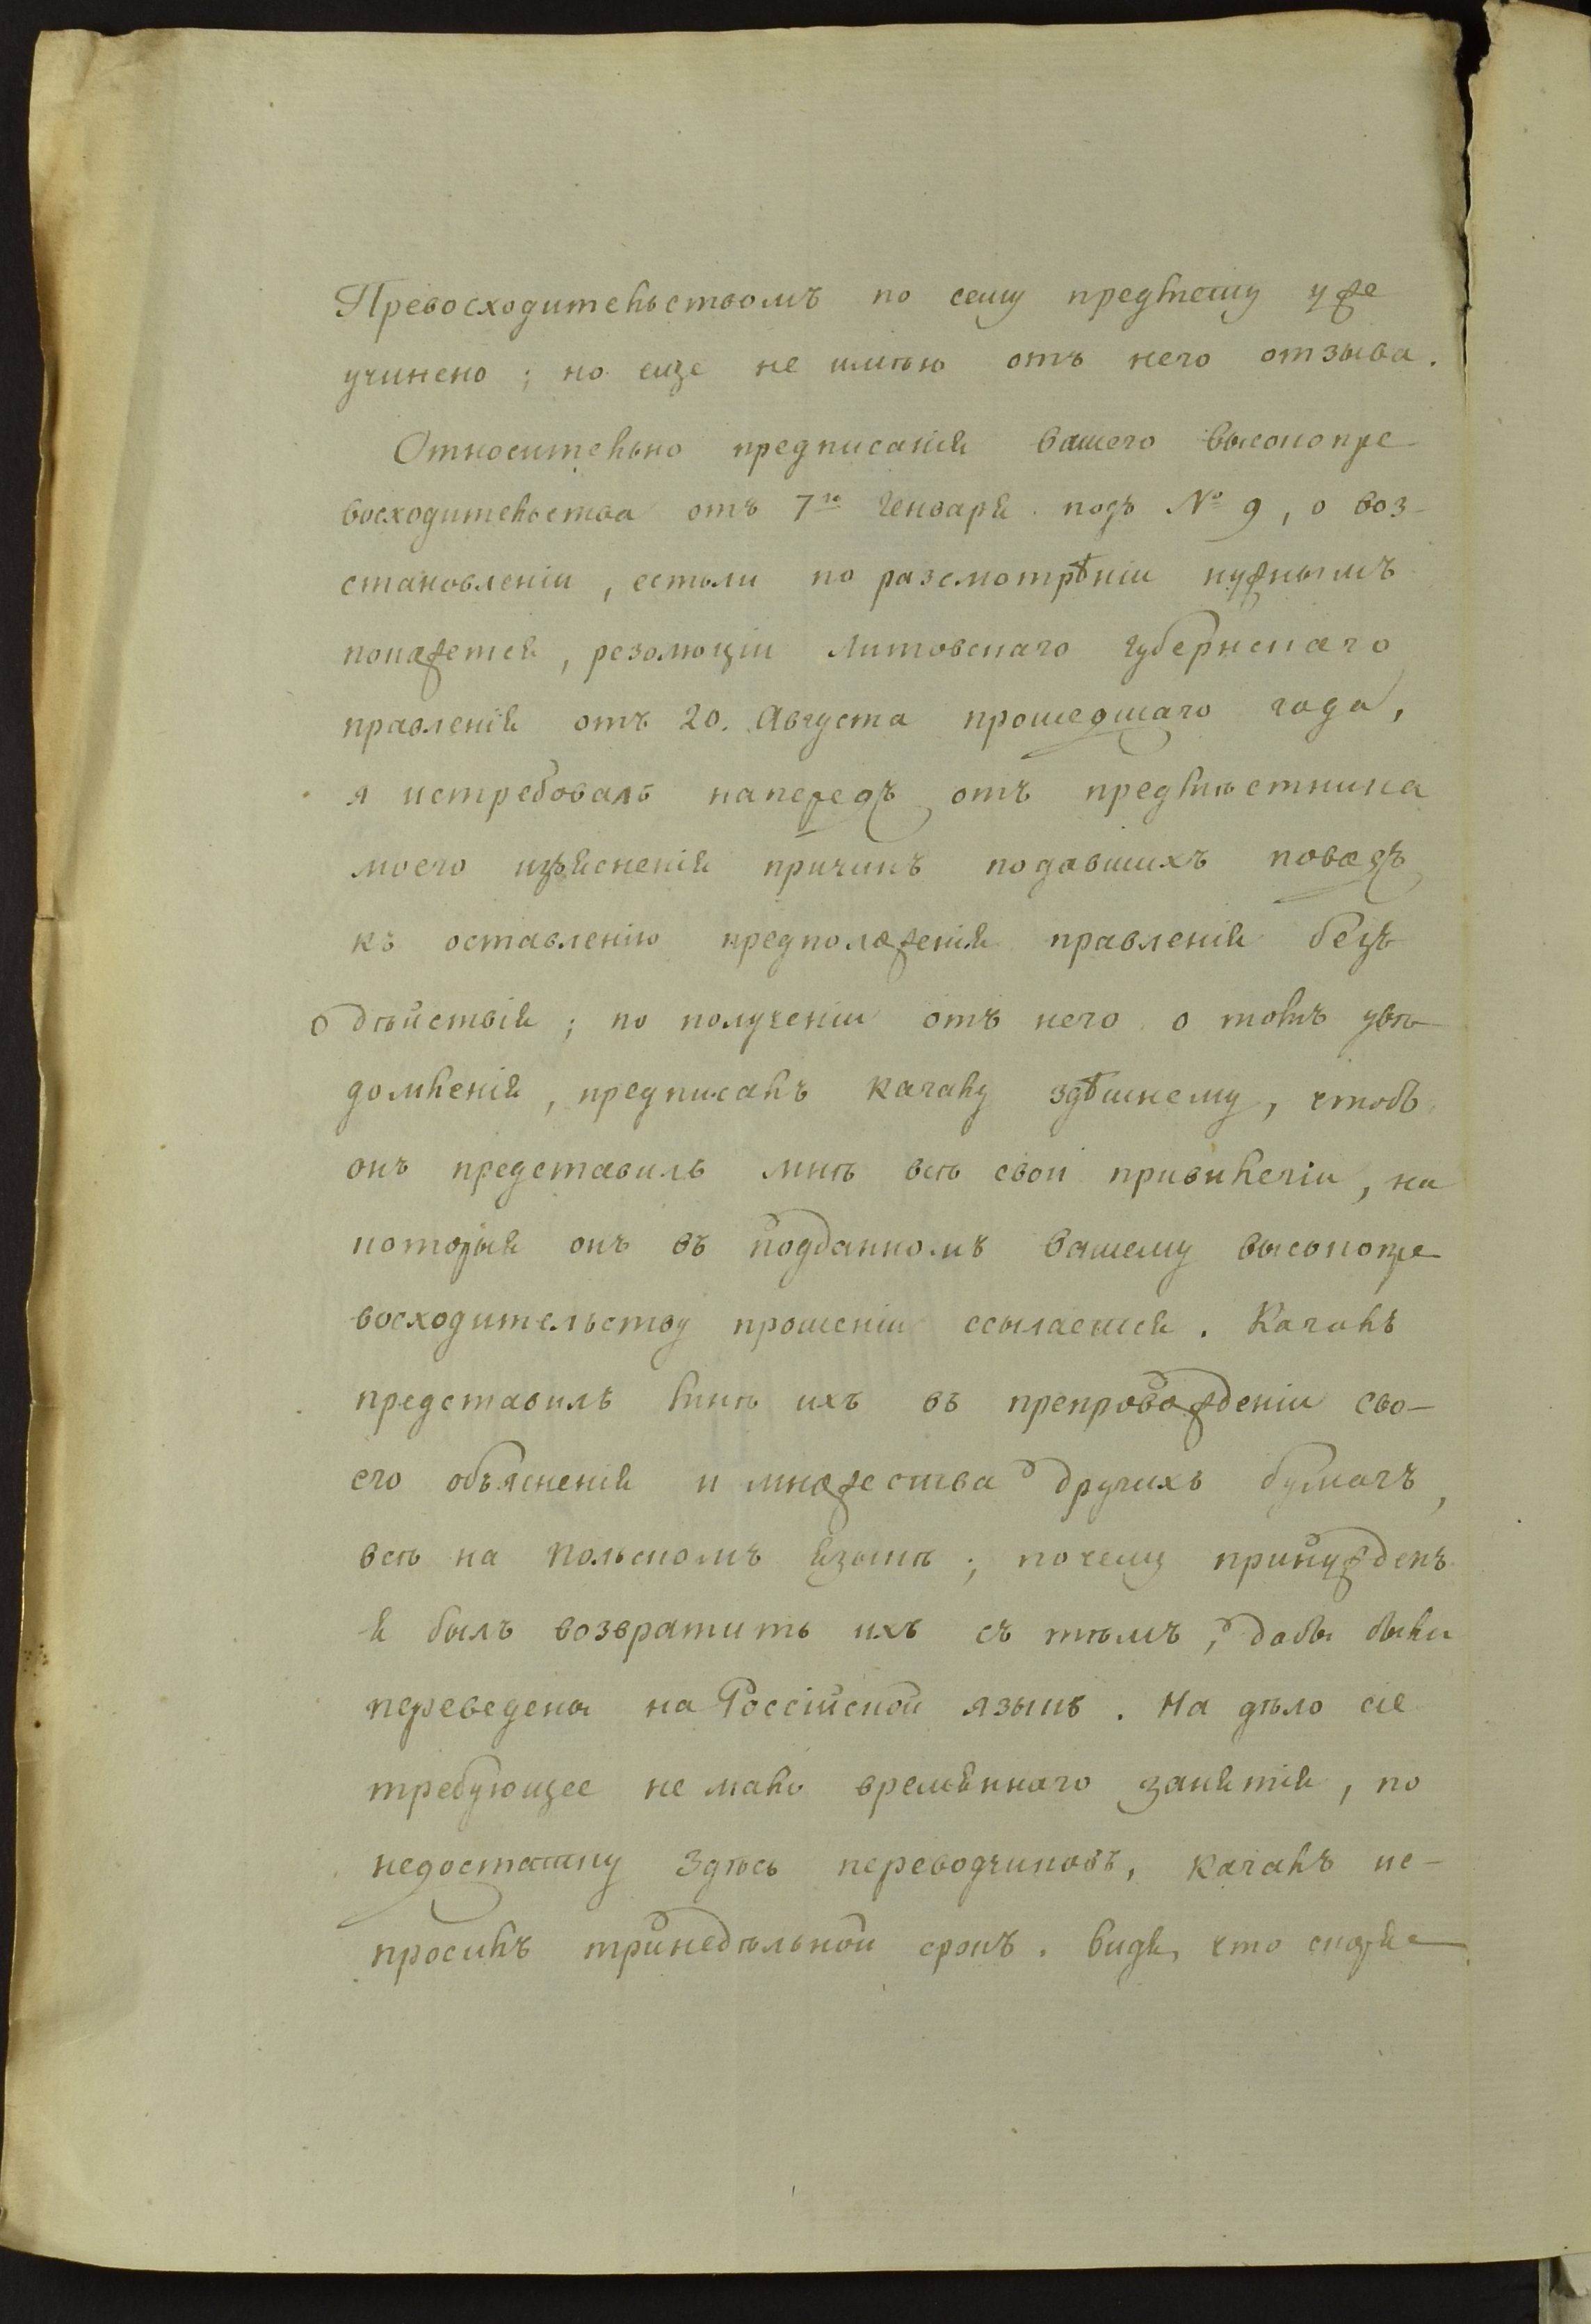 Превосходительствомъ по сему предмету уже
учинено; но еще не имѣю отъ него отзыва.
Относительно предписанія вашего высокопре-
восходительства отъ 7го Генваря подъ № 9, о воз-
становленіи, естьли по разсмотрѣніи нужнымъ
покажется, резолюціи Литовскаго Губернскаго
правленія отъ 20. Августа прошедшаго года,
я истребовалъ напередъ отъ предмѣстника
моего изъясненія причинъ подавшихъ поводъ
къ оставленію предположенія правленія безъ
дѣйствія; по полученіи отъ него о томъ увѣ-
домленія, предписалъ Кагалу здѣшнему, чтобъ
онъ представилъ мнѣ всѣ свои привилегіи, на
которыя онъ въ подданномъ вашему высокопре-
восходительству прошеніи ссылается. Кагалъ
представилъ мнѣ ихъ въ препровожденіи сво-
его объясненія и множества другихъ бумагъ,
всѣ на Польскомъ языкѣ; почему принужденъ
я былъ возвратить ихъ съ тѣмъ, дабы были
переведены на Россійской языкъ. На дѣло сіе
требующее не мало времяннаго занятія, по
недостатку здѣсь переводчиковъ, Кагалъ ис-
просилъ тринедѣльной срокъ. Видя, что скоряе